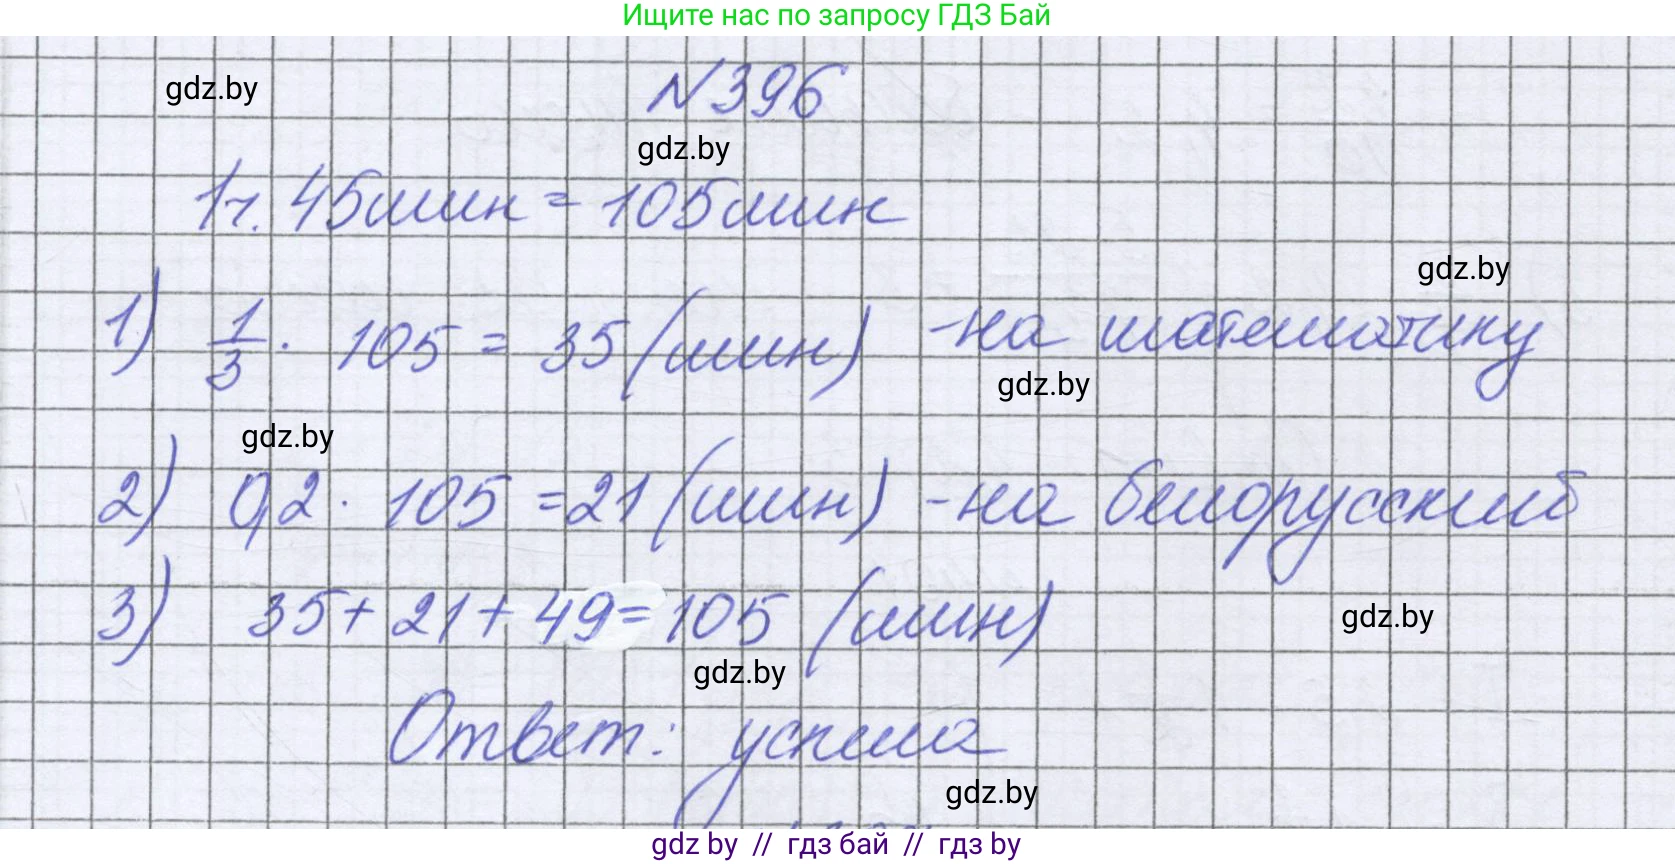 Ищите нас по запросу ГДЗ Бай
№396
gdz.by
gdz.by
1ч. 45мин = 105мин
gdz.by
1) 1/3 · 105 = 35 (мин) -на математику
gdz.by
gdz.by
2) 0,2 · 105 = 21 (мин) -на белорусский
3) 35 + 21 + 49 = 105 (мин)
gdz.by
gdz.by
Ответ: успела
gdz.by
gdz.by // гдз бай // гдз by